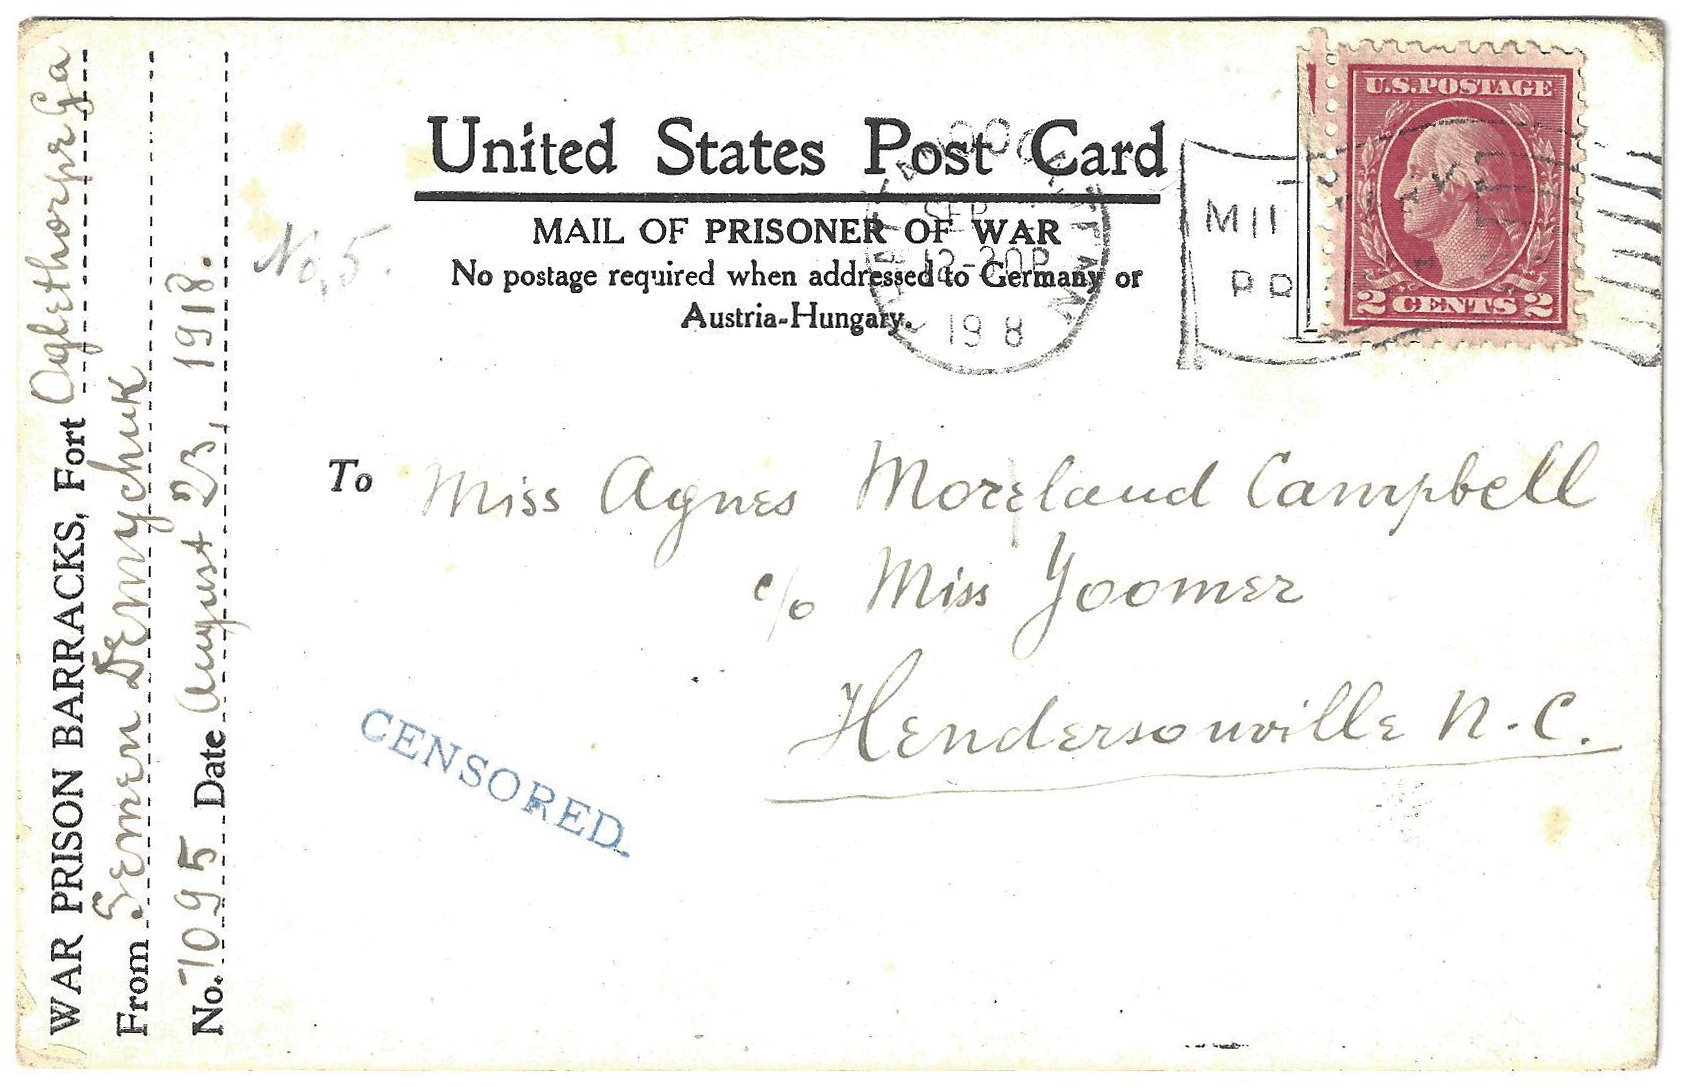 United States Post Card
MAIL OF PRISONER OF WAR
No postage required when addressed to Germany or
Austria-Hungary.
U.S. POSTAGE
2 CENTS 2
SEP
12-30P
19 8
MIL
PR
No. 5.
To Miss Agnes Moreland Campbell
c/o Miss Yoomer
Hendersonville N.C.
CENSORED.
WAR PRISON BARRACKS, Fort Oglethorpe Ga
From Semen Demychuk
No. 1095 Date August 23, 1918.